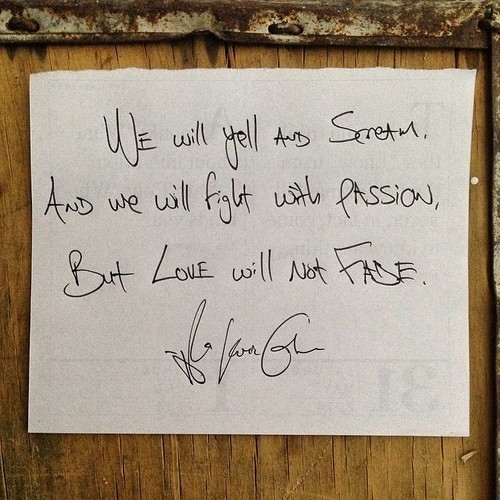 WE will yell AND Scream.
AND we will fight with PASSION,
But LOVE will Not FADE.